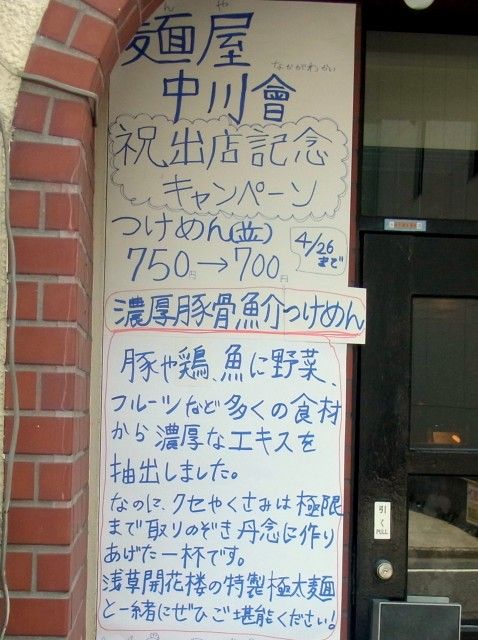 んや
麺屋
なかがわかい
中川會
祝出店記念
キャンペーン
つけめん(並)
750円→700円
4/26
まで
濃厚豚骨魚介つけめん
豚や鶏、魚に野菜、
フルーツなど多くの食材
から濃厚なエキスを
抽出しました。
なのに、クセやくさみは極限
まで取りのぞき丹念に作り
あげた一杯です。
浅草開花楼の特製極太麺
と一緒にぜひご堪能ください!
引く
PULL